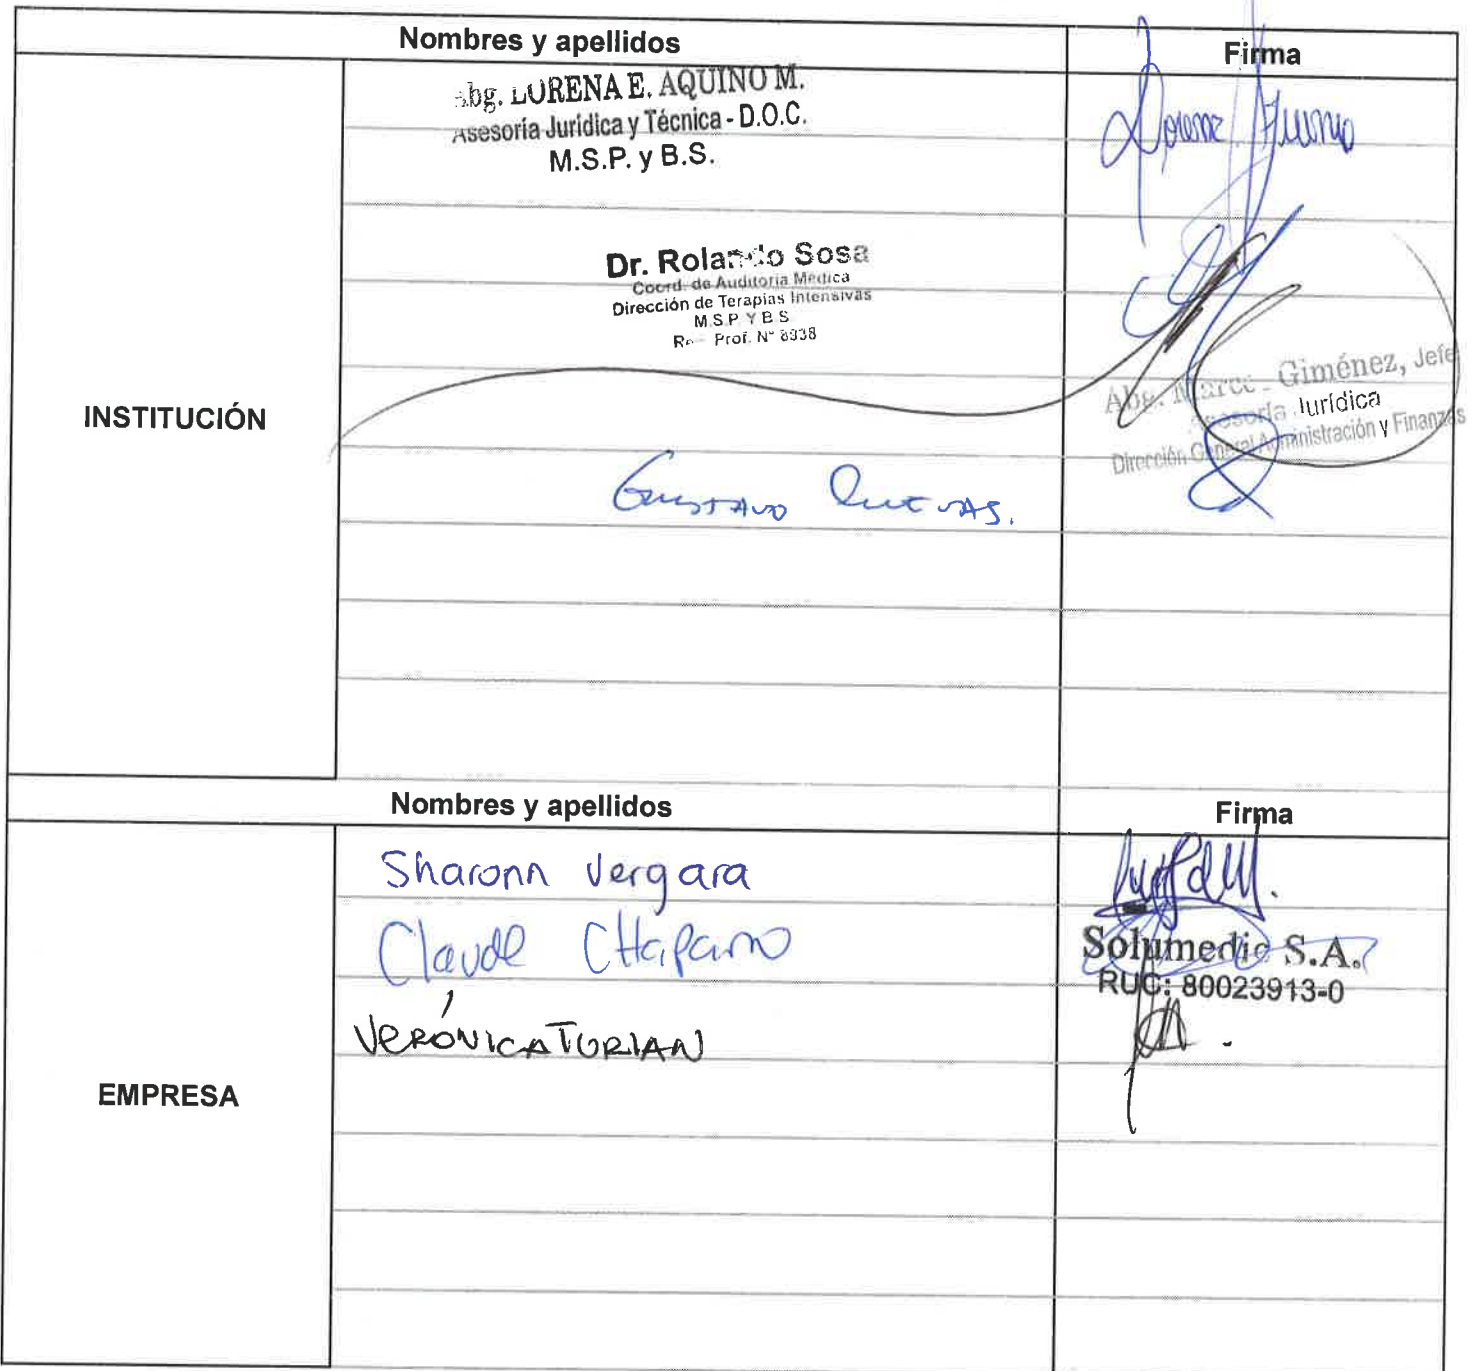 Nombres y apellidos
Firma
INSTITUCIÓN
Abg. LORENA E. AQUINO M.
Asesoría Jurídica y Técnica - D.O.C.
M.S.P. y B.S.
Dr. Rolando Sosa
Coord. de Auditoria Medica
Dirección de Terapias Intensivas
M.S.P Y B S
Prof. N° 8338
Abg. Giménez, Jefe
Asesoría Jurídica
Dirección General Administración y Finanzas
GUSTAVO
Nombres y apellidos
Firma
EMPRESA
Sharonn Vergara
Claude
VERÓNICA TORIAN
Solumedic S.A.
RUC: 80023913-0